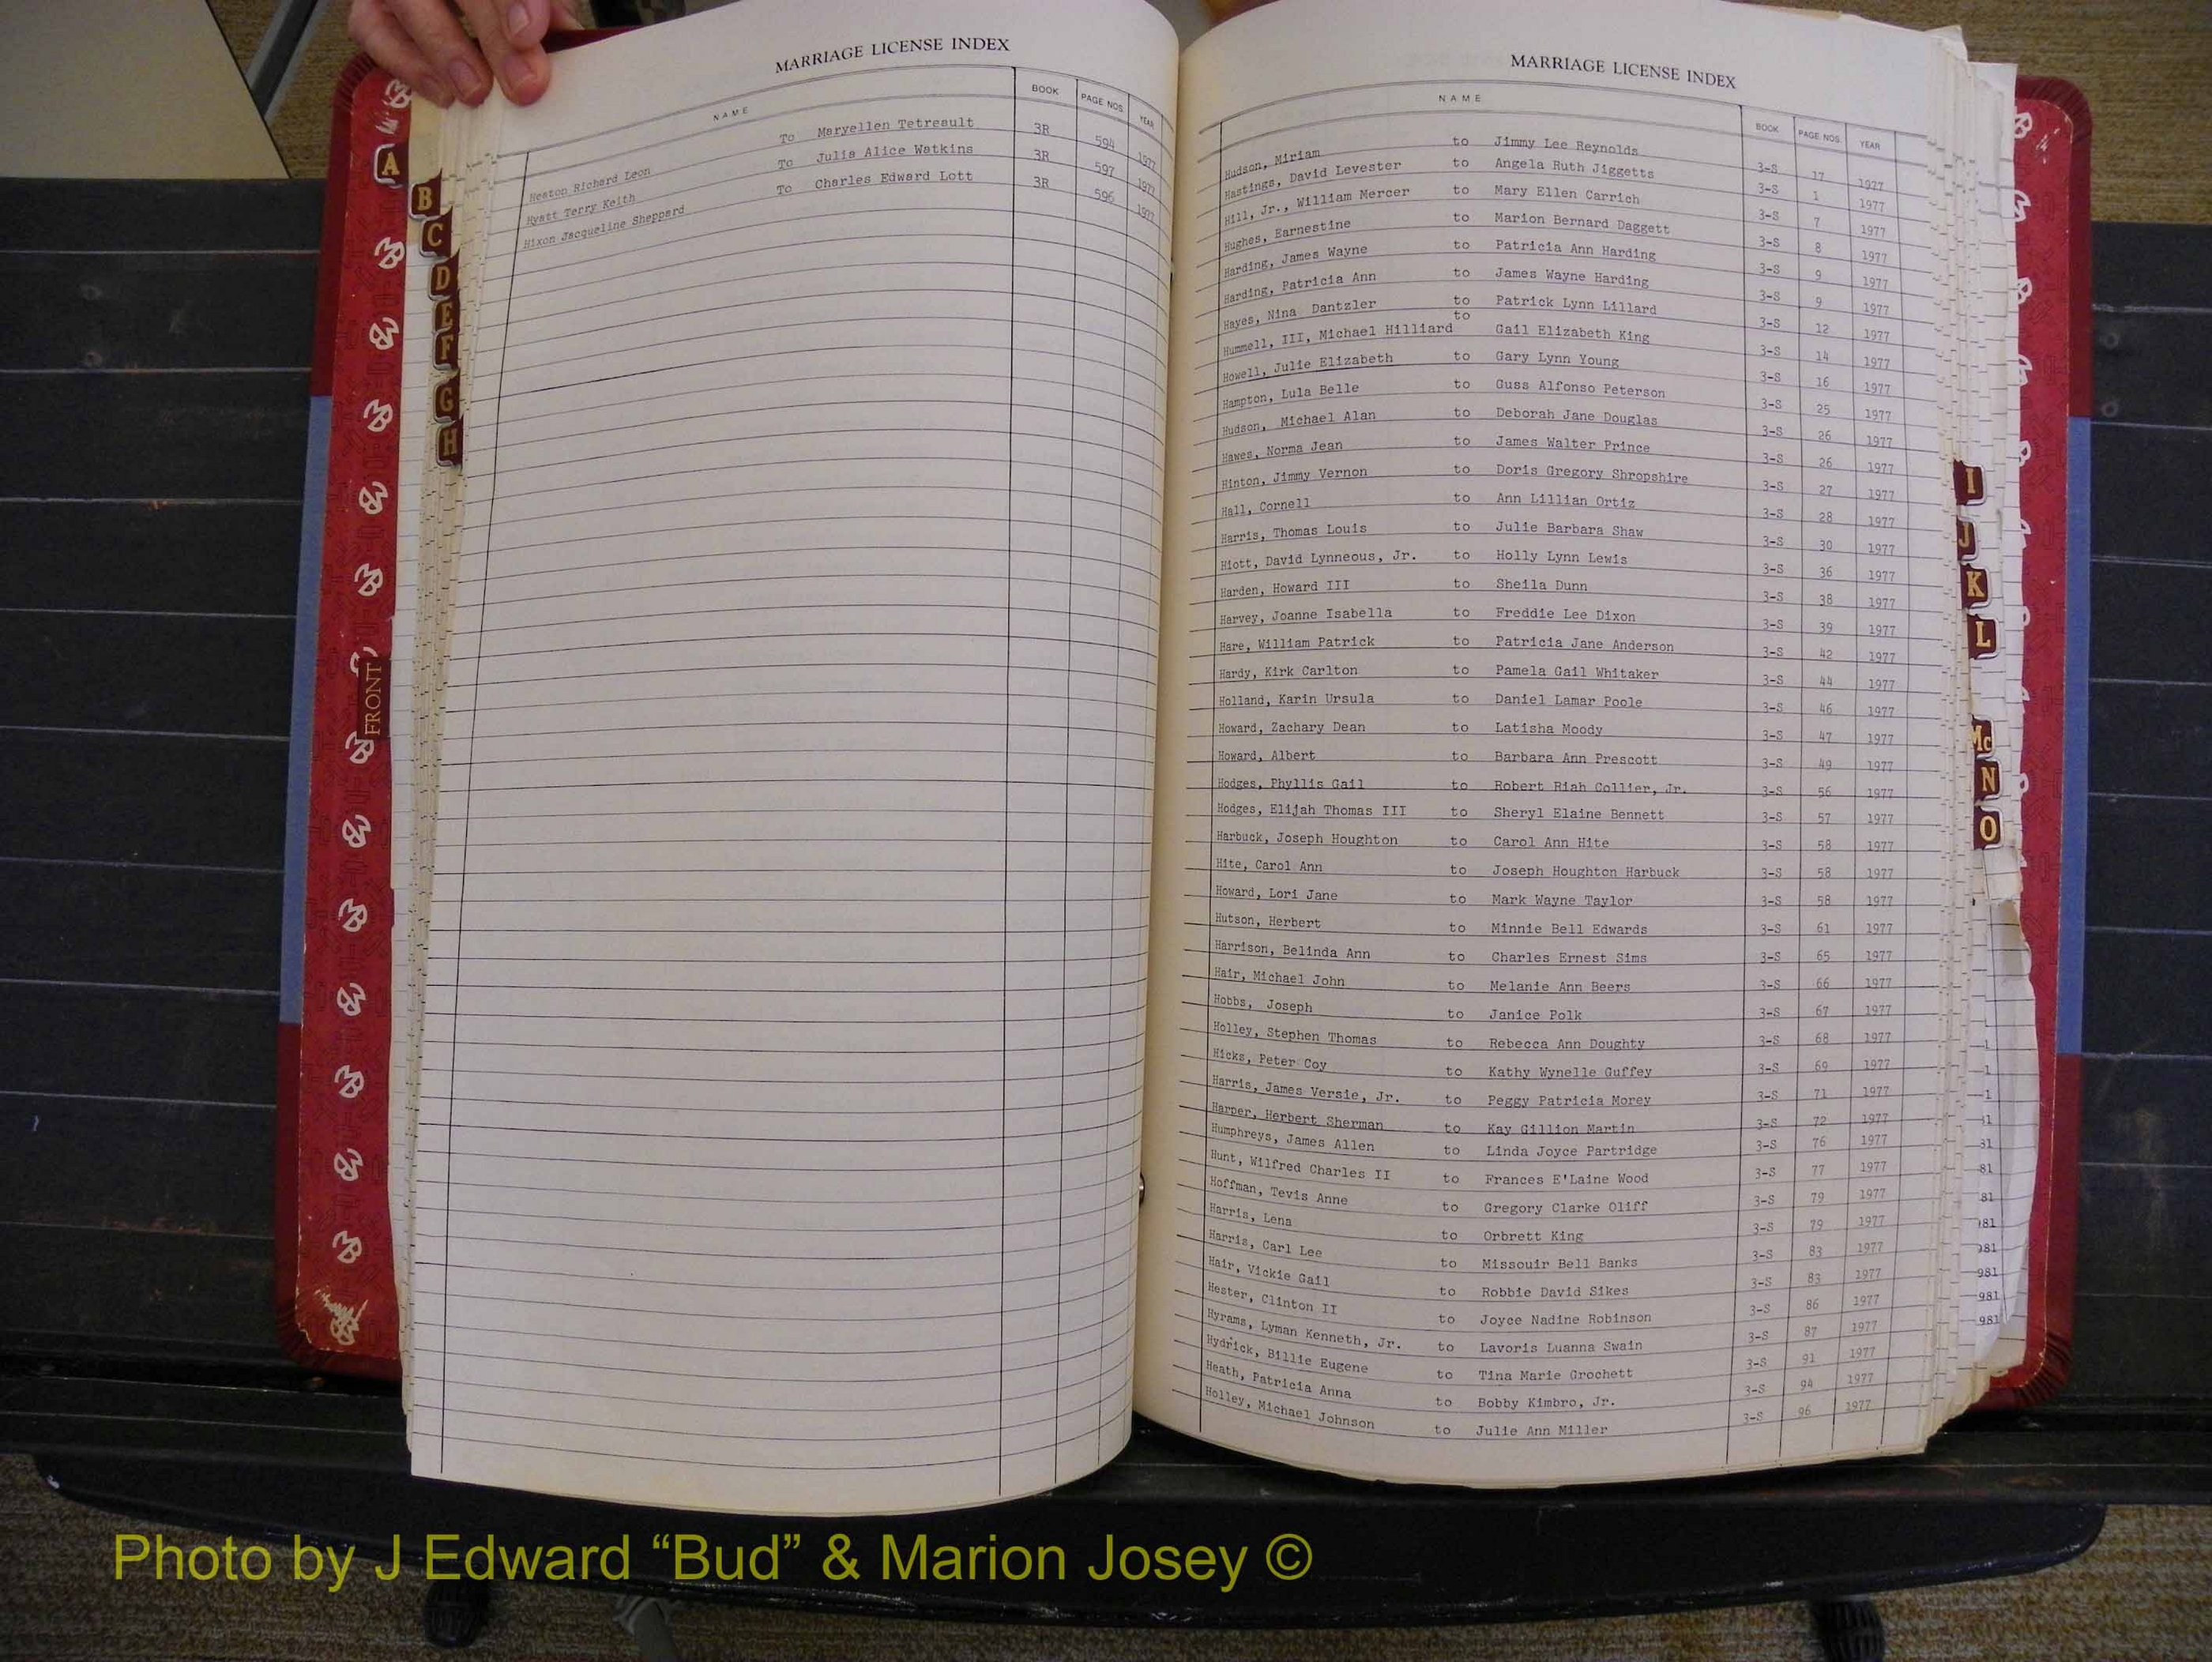 MARRIAGE LICENSE INDEX
NAME BOOK PAGE NOS. YEAR
Heaton Richard Leon To Maryellen Tetreault 3R 594 1977
Hyatt Terry Keith To Julia Alice Watkins 3R 597 1977
Hixon Jacqueline Sheppard To Charles Edward Lott 3R 596 1977
MARRIAGE LICENSE INDEX
NAME BOOK PAGE NOS. YEAR
Hudson, Miriam to Jimmy Lee Reynolds 3-S 17 1977
Hastings, David Levester to Angela Ruth Jiggetts 3-S 1 1977
Hill, Jr., William Mercer to Mary Ellen Carrich 3-S 7 1977
Hughes, Earnestine to Marion Bernard Daggett 3-S 8 1977
Harding, James Wayne to Patricia Ann Harding 3-S 9 1977
Harding, Patricia Ann to James Wayne Harding 3-S 9 1977
Hayes, Nina Dantzler to Patrick Lynn Lillard 3-S 12 1977
Hummell, III, Michael Hilliard to Gail Elizabeth King 3-S 14 1977
Howell, Julie Elizabeth to Gary Lynn Young 3-S 16 1977
Hampton, Lula Belle to Guss Alfonso Peterson 3-S 25 1977
Hudson, Michael Alan to Deborah Jane Douglas 3-S 26 1977
Hawes, Norma Jean to James Walter Prince 3-S 26 1977
Hinton, Jimmy Vernon to Doris Gregory Shropshire 3-S 27 1977
Hall, Cornell to Ann Lillian Ortiz 3-S 28 1977
Harris, Thomas Louis to Julie Barbara Shaw 3-S 30 1977
Hiott, David Lynneous, Jr. to Holly Lynn Lewis 3-S 36 1977
Harden, Howard III to Sheila Dunn 3-S 38 1977
Harvey, Joanne Isabella to Freddie Lee Dixon 3-S 39 1977
Hare, William Patrick to Patricia Jane Anderson 3-S 42 1977
Hardy, Kirk Carlton to Pamela Gail Whitaker 3-S 44 1977
Holland, Karin Ursula to Daniel Lamar Poole 3-S 46 1977
Howard, Zachary Dean to Latisha Moody 3-S 47 1977
Howard, Albert to Barbara Ann Prescott 3-S 49 1977
Hodges, Phyllis Gail to Robert Riah Collier, Jr. 3-S 56 1977
Hodges, Elijah Thomas III to Sheryl Elaine Bennett 3-S 57 1977
Harbuck, Joseph Houghton to Carol Ann Hite 3-S 58 1977
Hite, Carol Ann to Joseph Houghton Harbuck 3-S 58 1977
Howard, Lori Jane to Mark Wayne Taylor 3-S 58 1977
Hutson, Herbert to Minnie Bell Edwards 3-S 61 1977
Harrison, Belinda Ann to Charles Ernest Sims 3-S 65 1977
Hair, Michael John to Melanie Ann Beers 3-S 66 1977
Hobbs, Joseph to Janice Polk 3-S 67 1977
Holley, Stephen Thomas to Rebecca Ann Doughty 3-S 68 1977
Hicks, Peter Coy to Kathy Wynelle Guffey 3-S 69 1977
Harris, James Versie, Jr. to Peggy Patricia Morey 3-S 71 1977
Harper, Herbert Sherman to Kay Gillion Martin 3-S 72 1977
Humphreys, James Allen to Linda Joyce Partridge 3-S 76 1977
Hunt, Wilfred Charles II to Frances E'Laine Wood 3-S 77 1977
Hoffman, Tevis Anne to Gregory Clarke Oliff 3-S 79 1977
Harris, Lena to Orbrett King 3-S 79 1977
Harris, Carl Lee to Missouir Bell Banks 3-S 83 1977
Hair, Vickie Gail to Robbie David Sikes 3-S 83 1977
Hester, Clinton II to Joyce Nadine Robinson 3-S 86 1977
Hyrams, Lyman Kenneth, Jr. to Lavoris Luanna Swain 3-S 87 1977
Hydrick, Billie Eugene to Tina Marie Crochett 3-S 91 1977
Heath, Patricia Anna to Bobby Kimbro, Jr. 3-S 94 1977
Holley, Michael Johnson to Julie Ann Miller 3-S 96 1977
A
B
C
D
E
F
G
H
FRONT
I
J
K
L
Mc
N
O
Photo by J Edward “Bud” & Marion Josey ©